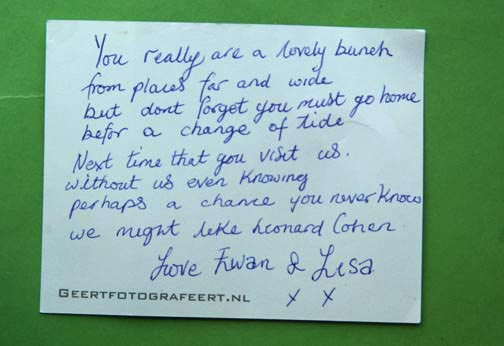 You really are a lovely bunch
from places far and wide
but dont forget you must go home
befor a change of tide
Next time that you visit us.
without us even knowing
perhaps a chance you never know
we might like Leonard Cohen.
Love Ewan & Lisa
x x
GEERTFOTOGRAFEERT.NL